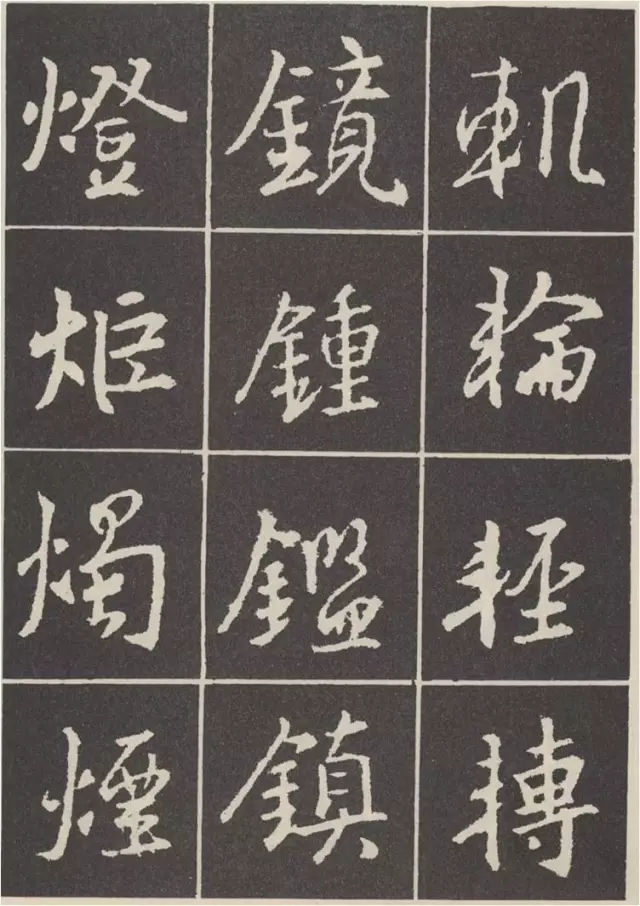 軓輪輕轉
鏡鍾鑑鎮
燈炬燭煙